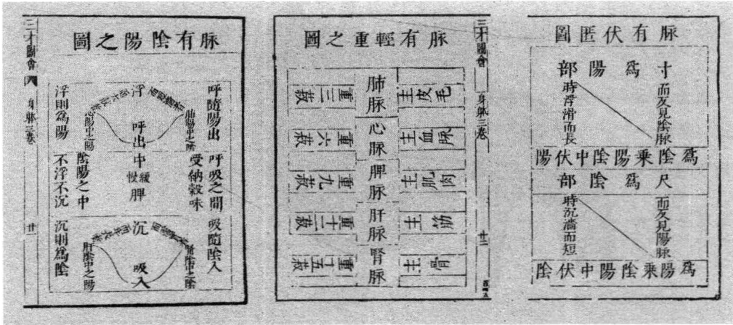 脈有伏匿圖
寸爲陽部
而反見陰脈
時浮滑而長
爲陰乘陽陰中伏陽
尺爲陰部
而反見陽脈
時沉濇而短
爲陽乘陰陽中伏陰
三才圖會
身體三卷
廿二
脈有輕重之圖
主皮毛
肺脈
重三菽
主血脈
心脈
重六菽
主肌肉
脾脈
重九菽
主筋
肝脈
重十二菽
主骨
腎脈
重十五菽
脈有陰陽之圖
呼隨陽出
浮
呼出
心陽中之陽
浮則爲陽
呼吸之間
受納穀味
中
緩慢
脾
陰陽之中
不浮不沉
吸隨陰入
沉
吸入
肝陰中之陽
沉則爲陰
三才圖會
身體三卷
廿一